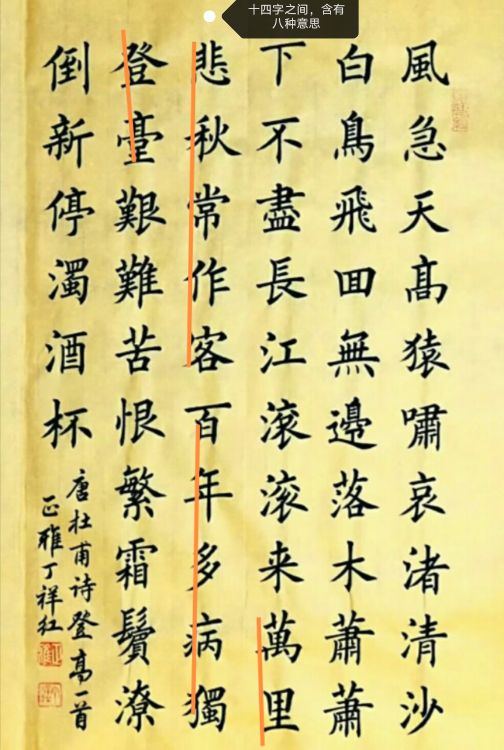 十四字之间，含有
八种意思
風急天髙猿嘯哀渚清沙
白鳥飛囬無邊落木蕭蕭
下不盡長江滚滚来萬里
悲秋常作客百年多病獨
登臺艱難苦恨繁霜鬢潦
倒新停濁酒杯
唐杜甫诗登髙一首
正雅丁祥红